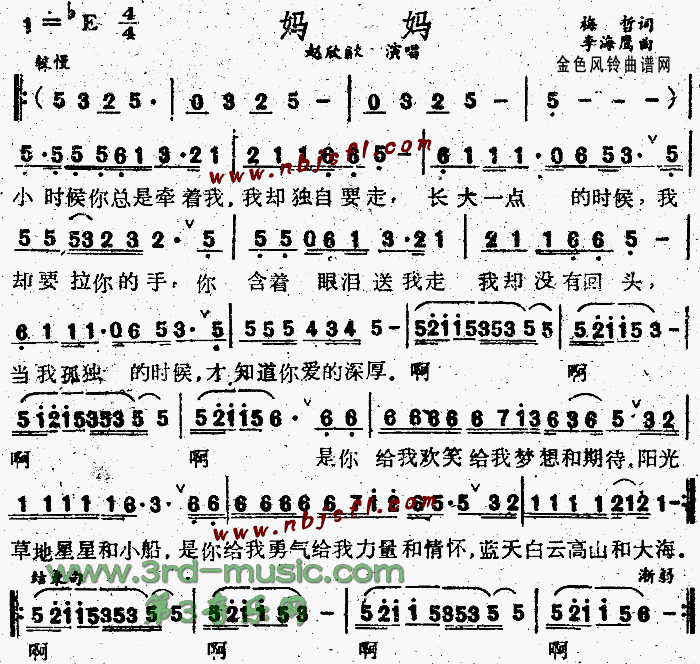 1=♭E 4/4
妈 妈
梅 哲词
李海鹰曲
赵欣 演唱
金色风铃曲谱网
较慢
( 5 3 2 5 · | 0 3 2 5 - | 0 3 2 5 - | 5 - - ) |
5·5 5 5 6 1 3·2 1 | 2 1 1 1 6 6 5 - | 6 1 1 1·0 6 5 3· ∨ 5 |
www.nbjsfl.com
小时候你总是牵着我,我却独自要走,长大一点 的时候,我
5 5 5 3 2 3 2· ∨ 5 | 5 5 0 6 1 3·2 1 | 2 1 1 6 6 5 - |
却要拉你的手,你 含着 眼泪送我走 我却没有回头,
6 1 1 1·0 6 5 3· ∨ 5 | 5 5 5 4 3 4 5 - | 5 2 1 1 5 3 5 3 5 5 | 5 2 1 1 5 3 - |
当我孤独 的时候,才知道你爱的深厚。啊 啊
5 1 2 1 5 3 5 3 5 5 | 5 2 1 1 5 6· ∨ 6 6 | 6 6 6 6 6 6 7 1 3 6 6 5 ∨ 3 2 |
啊 啊 是你 给我欢笑给我梦想和期待,阳光
1 1 1 1 1 6·3· ∨ 6 6 | 6 6 6 6 6 7 1 2 6 5· ∨ 3 2 | 1 1 1 1 1 2 1 2 1 - |
www.nbjsfl.com
草地星星和小船,是你给我勇气给我力量和情怀,蓝天白云高山和大海。
www.3rd-music.com
结束句 渐弱
5 2 1 1 5 3 5 3 5 5 | 5 2 1 1 5 3 - | 5 2 1 1 5 3 5 3 5 5 | 5 2 1 1 5 6 - |
啊 啊 啊 啊